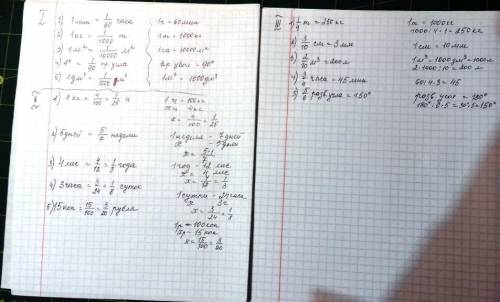 I
1) 1 мин = 1/60 часа   1ч = 60 мин
2) 1 кг = 1/1000 т   1т = 1000кг
3) 1м² = 1/10000 га   1га = 10000м²
4) 1° = 1/90 пр. угла   пр. угол = 90°
5) 1дм³ = 1/1000 м³   1м³ = 1000дм³
1) 4 кг = 4/100 = 1/25 ц   1ц = 100кг
xц   4кг
x = 4/100 = 1/25
2) 5дней = 5/7 недели   1неделя - 7дней
x = 5·1/7
3) 4 мес = 4/12 = 1/3 года   1год - 12 мес
x   4 мес
x = 4/12 = 1/3
4) 3часа = 3/24 = 1/8 суток   1сутки - 24часа
x   3ч
x = 3/24 = 1/8
5) 15 коп = 15/100 = 3/20 рубля   1р - 100коп
xр - 15коп
x = 15/100 = 3/20
III
1) 1/4 т = 250 кг   1т = 1000кг
1000:4·1 = 250кг
2) 3/10 см = 3 мм   1см = 10мм
3) 2/10 м³ = 200л   1м³ = 1000дм³ = 1000л
2·1000:10 = 200 л
4) 3/4 часа = 45 мин   60:4·3 = 45
5) 5/6 разв.угла = 150°   разв. угол = 180°
180°:6·5 = 30°·5 = 150°